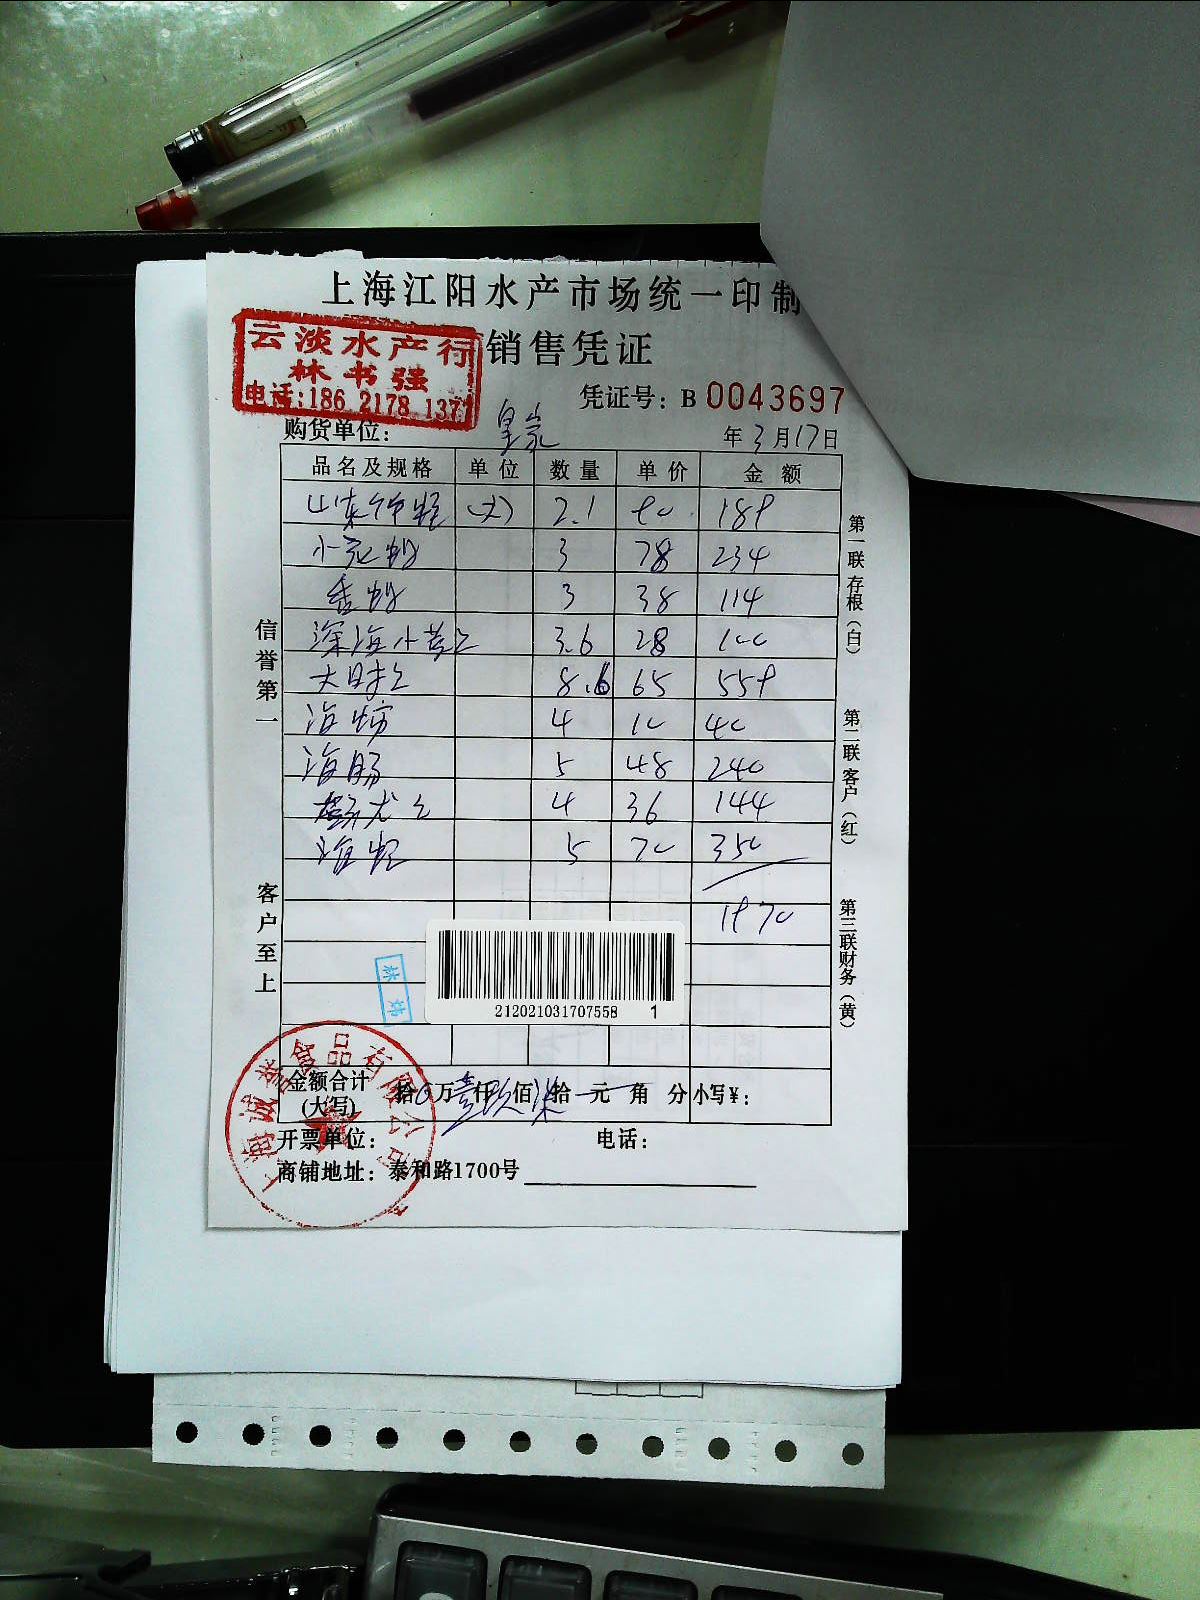 上海江阳水产市场统一印制
云淡水产行
林书强
电话:186 2178 1377
销售凭证
凭证号: B 0043697
购货单位: 皇家
年 3 月 17 日
品名及规格 单位 数量 单价 金额
山东 (大) 2.1 90 189
小 3 78 234
香 3 38 114
深海小 3.6 28 100
大 8.6 65 559
海 4 10 40
海肠 5 48 240
4 36 144
5 70 350
1970
信誉第一
客户至上
第一联存根(白)
第二联客户(红)
第三联财务(黄)
林炜
212021031707558 1
上海诚誉食品有限公司
金额合计(大写) 拾 0 万 壹 仟 玖 佰 柒 拾 元 角 分 小写¥:
开票单位: 电话:
商铺地址: 泰和路1700号